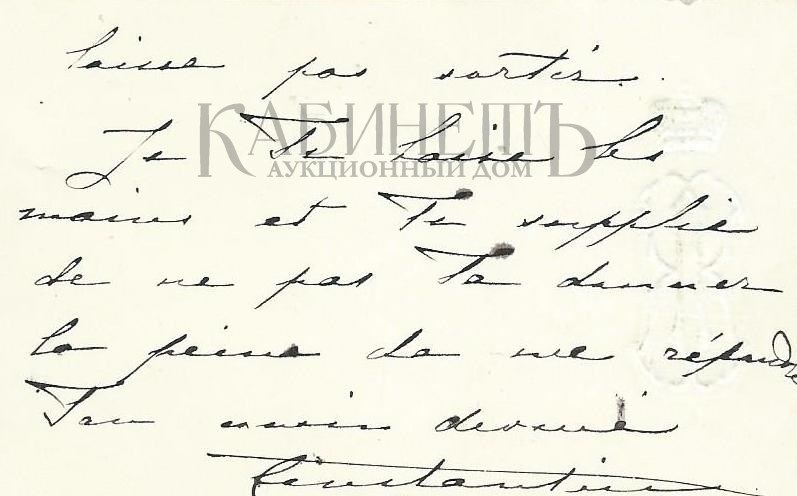 laisse pas sortir.
КАБИНЕТЪ
АУКЦИОННЫЙ ДОМ
Je Te baise les
mains et Te supplie
de ne pas Te donner
la peine de me répondre
Ton dévoué
Constantin